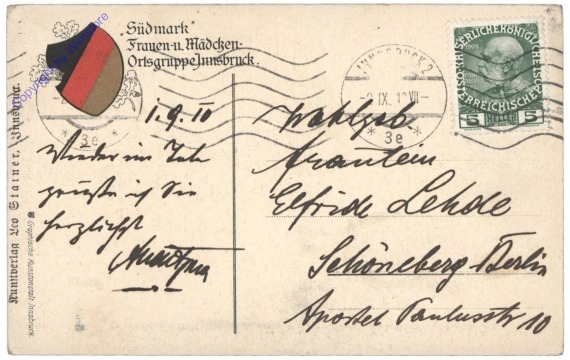 „Südmark"
Frauen-u. Mädchen-
Ortsgruppe Innsbruck.
INNSBRUCK 2
2.IX.10.VII-
* 3e *
* 3e *
KAISERLICHE KÖNIGLICHE
ÖSTERREICHISCHE POST
5 5
1.9.10
Wieder im Tale
grüßt ich Sie
herzlichst
Wohlgeb
Fräulein
Elfride Lehde
Schöneberg-Berlin
Apostel Paulusstr 10
Kunstverlag Leo Stainer, Innsbruck.
Graphische Kunstanstalt Innsbruck